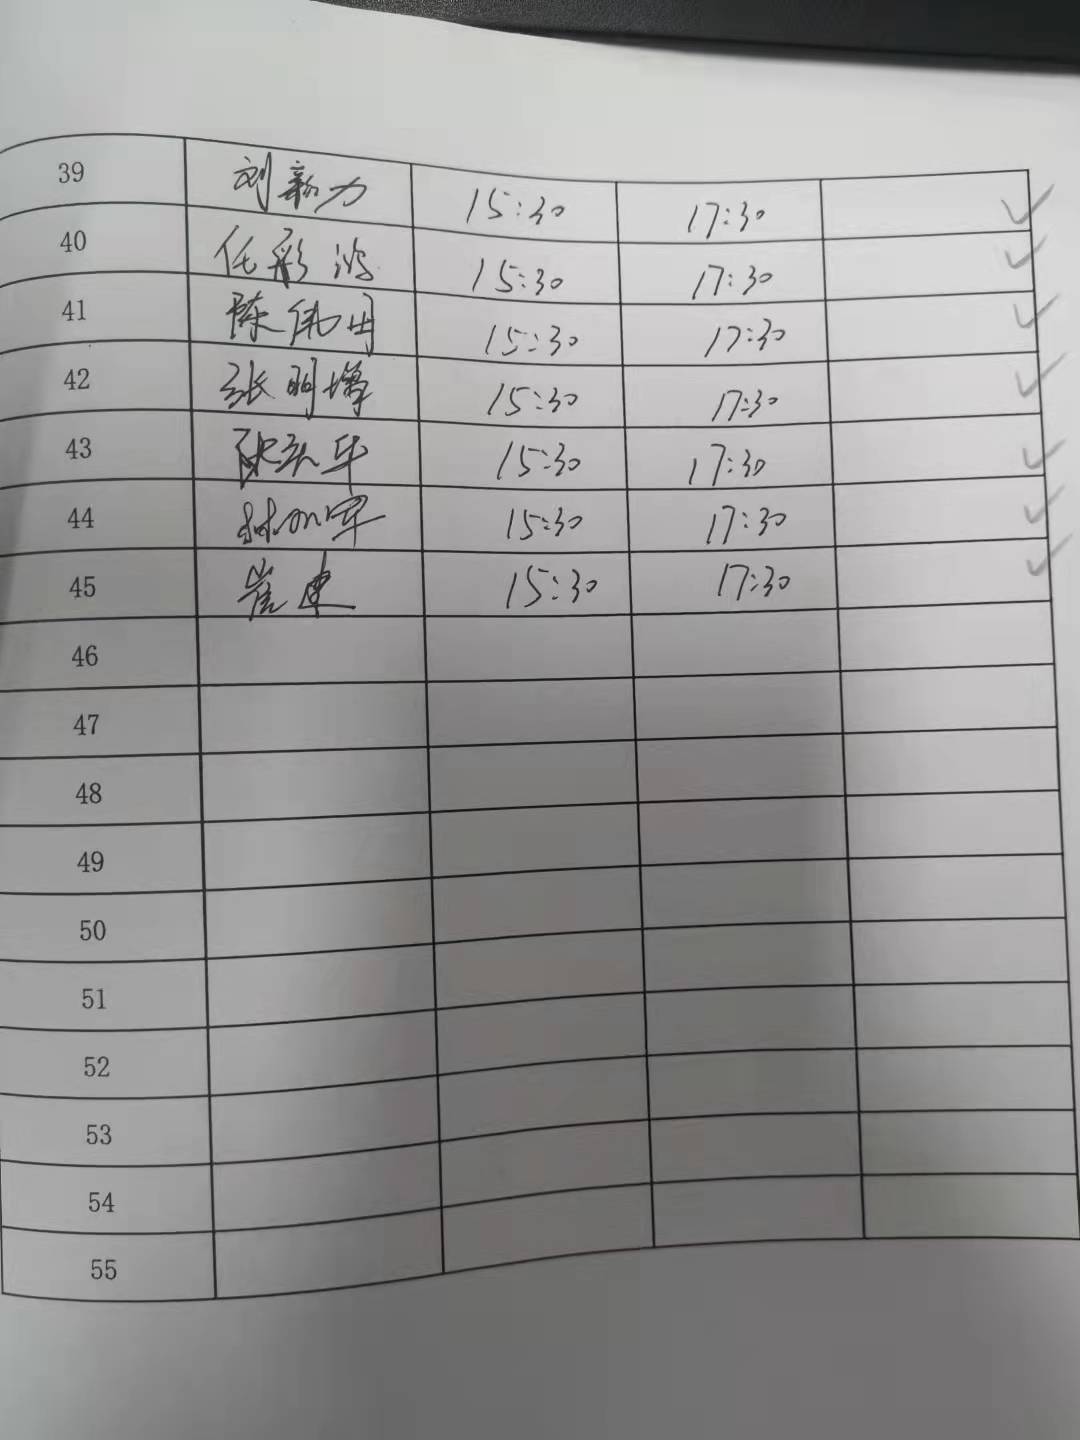 39 刘新力 15:30 17:30 ✓
40 任彩 15:30 17:30 ✓
41 陈伟 15:30 17:30 ✓
42 张明增 15:30 17:30 ✓
43 华 15:30 17:30 ✓
44 林 军 15:30 17:30 ✓
45 崔建 15:30 17:30 ✓
46
47
48
49
50
51
52
53
54
55